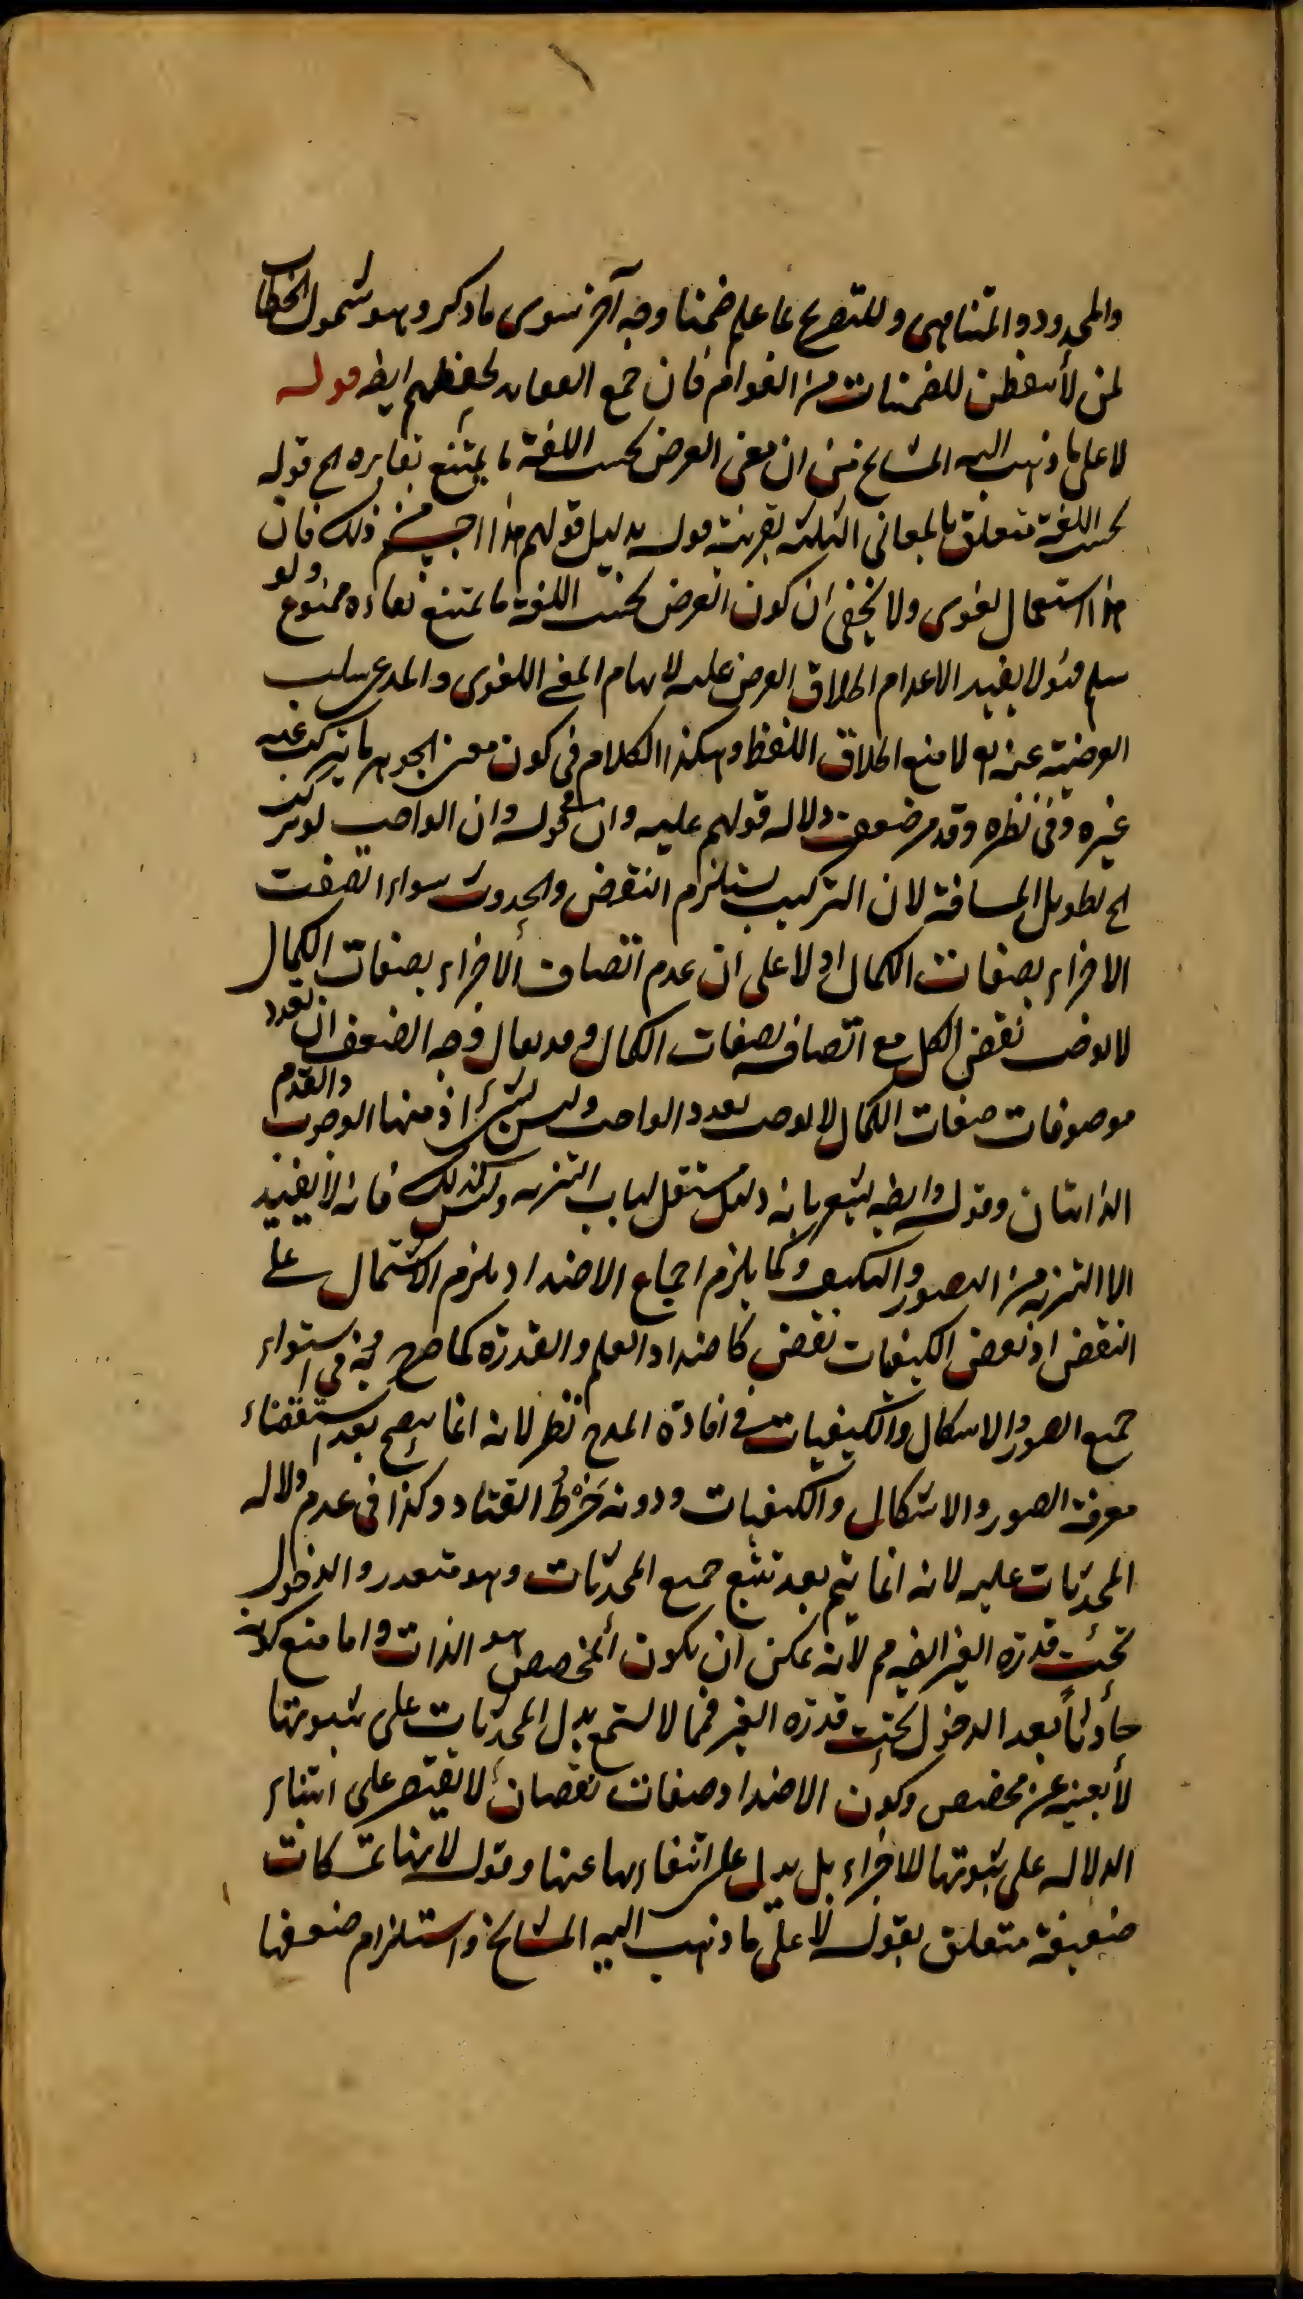 والمحدود والمتناهى وللتصريح بما علم ضمنا وجه آخر سوى ما ذكر وهو شمول الخطاب
لمن لا يتفطن للضمنيات من العوام فان جمع العقائد لحفظهم ايضا قوله
لا على ما ذهب اليه المشايخ من ان معنى العرض بحسب اللغة ما يمتنع بقاؤه الخ قوله
بحسب اللغة متعلق بالمعانى الثلثة بقرينة قوله بدليل قولهم هذا اجسم من ذلك فان
هذا استعمال لغوى ولا يخفى ان كون العرض بحسب اللغة ما يمتنع بقاؤه ممنوع ولو
سلم فهو لا يفيد الا عدم اطلاق العرض عليه لايهام المعنى اللغوى والمدعى سلب
العرضية عنه تع لا منع اطلاق اللفظ وهكذا الكلام فى كون معنى الجوهر ما يتركب عنه
غيره وفى نظره وقد مر ضعف دلالة قولهم عليه وان فى قوله وان الواجب لو تركب
الخ تطويل المسافة لان التركيب يستلزم النقص والحدوث سواء اتصفت
الاجزاء بصفات الكمال او لا على ان عدم اتصاف الاجزاء بصفات الكمال
لا يوجب نقص الكل مع اتصافه بصفات الكمال وقد يقال وجه الضعف ان تعدد
موصوفات صفات الكمال لا يوجب تعدد الواجب وليس بشئ اذ منها الوجوب والقدم
الذاتيان وقوله وايضا يشعر بانه دليل مستقل لباب التنزيه وليس كذلك فانه لا يفيد
الا التنزيه من التصور والتكيف وكما يلزم اجماع الاضداد يلزم الاشتمال على
النقص اذ بعض الكيفيات نقص كاضداد العلم والقدرة كما صرح به فى استواء
جميع الصور والاشكال والكيفيات فى افادة المدح نظر لانه انما يصح بعد استقصاء
معرفة الصور والاشكال والكيفيات ودونه خرط القتاد وكذا فى عدم دلالة
المحدثات عليه لانه انما يتم بعد تتبع جميع المحدثات وهو متعذر والدخول
تحت قدرة الغير ايضا مم لانه يمكن ان يكون المخصص هو الذات واما منع كونه
حادثا بعد الدخول تحت قدرة الغير فمما لا يستمع بل المحدثات على ثبوتها
لا بعينه عن مخصص وكون الاضداد صفات نقصان لا يقتصر على انتفاء
الدلالة على ثبوتها للاجزاء بل يدل على انتفائها عنها وقوله لانها تمسكات
ضعيفة متعلق بقوله لا على ما ذهب اليه المشايخ واستلزام ضعفها